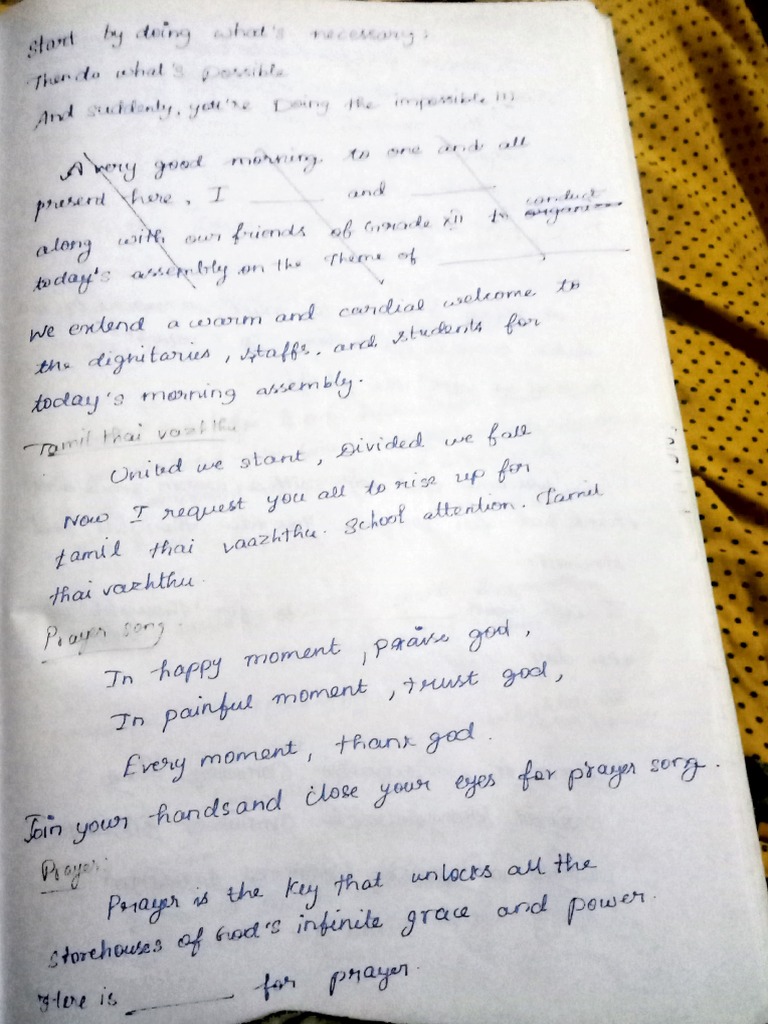 Start by doing what's necessary;
Then do what's possible
And suddenly, you're Doing the impossible !!!
A very good morning to one and all
present here, I ______ and ______
along with our friends of Grade XII to conduct
today's assembly on the Theme of ______
We extend a warm and cardial welcome to
the dignitaries, staffs, and students for
today's morning assembly.
Tamil thai vazhthu
United we stant, Divided we fall
Now I request you all to rise up for
tamil thai vaazhthu. School attention. Tamil
thai vazhthu.
Prayer song.
In happy moment, praise god,
In painful moment, trust god,
Every moment, thank god.
Join your hands and close your eyes for prayer song.
Prayer:
Prayer is the key that unlocks all the
storehouses of God's infinite grace and power.
Here is ______ for prayer.